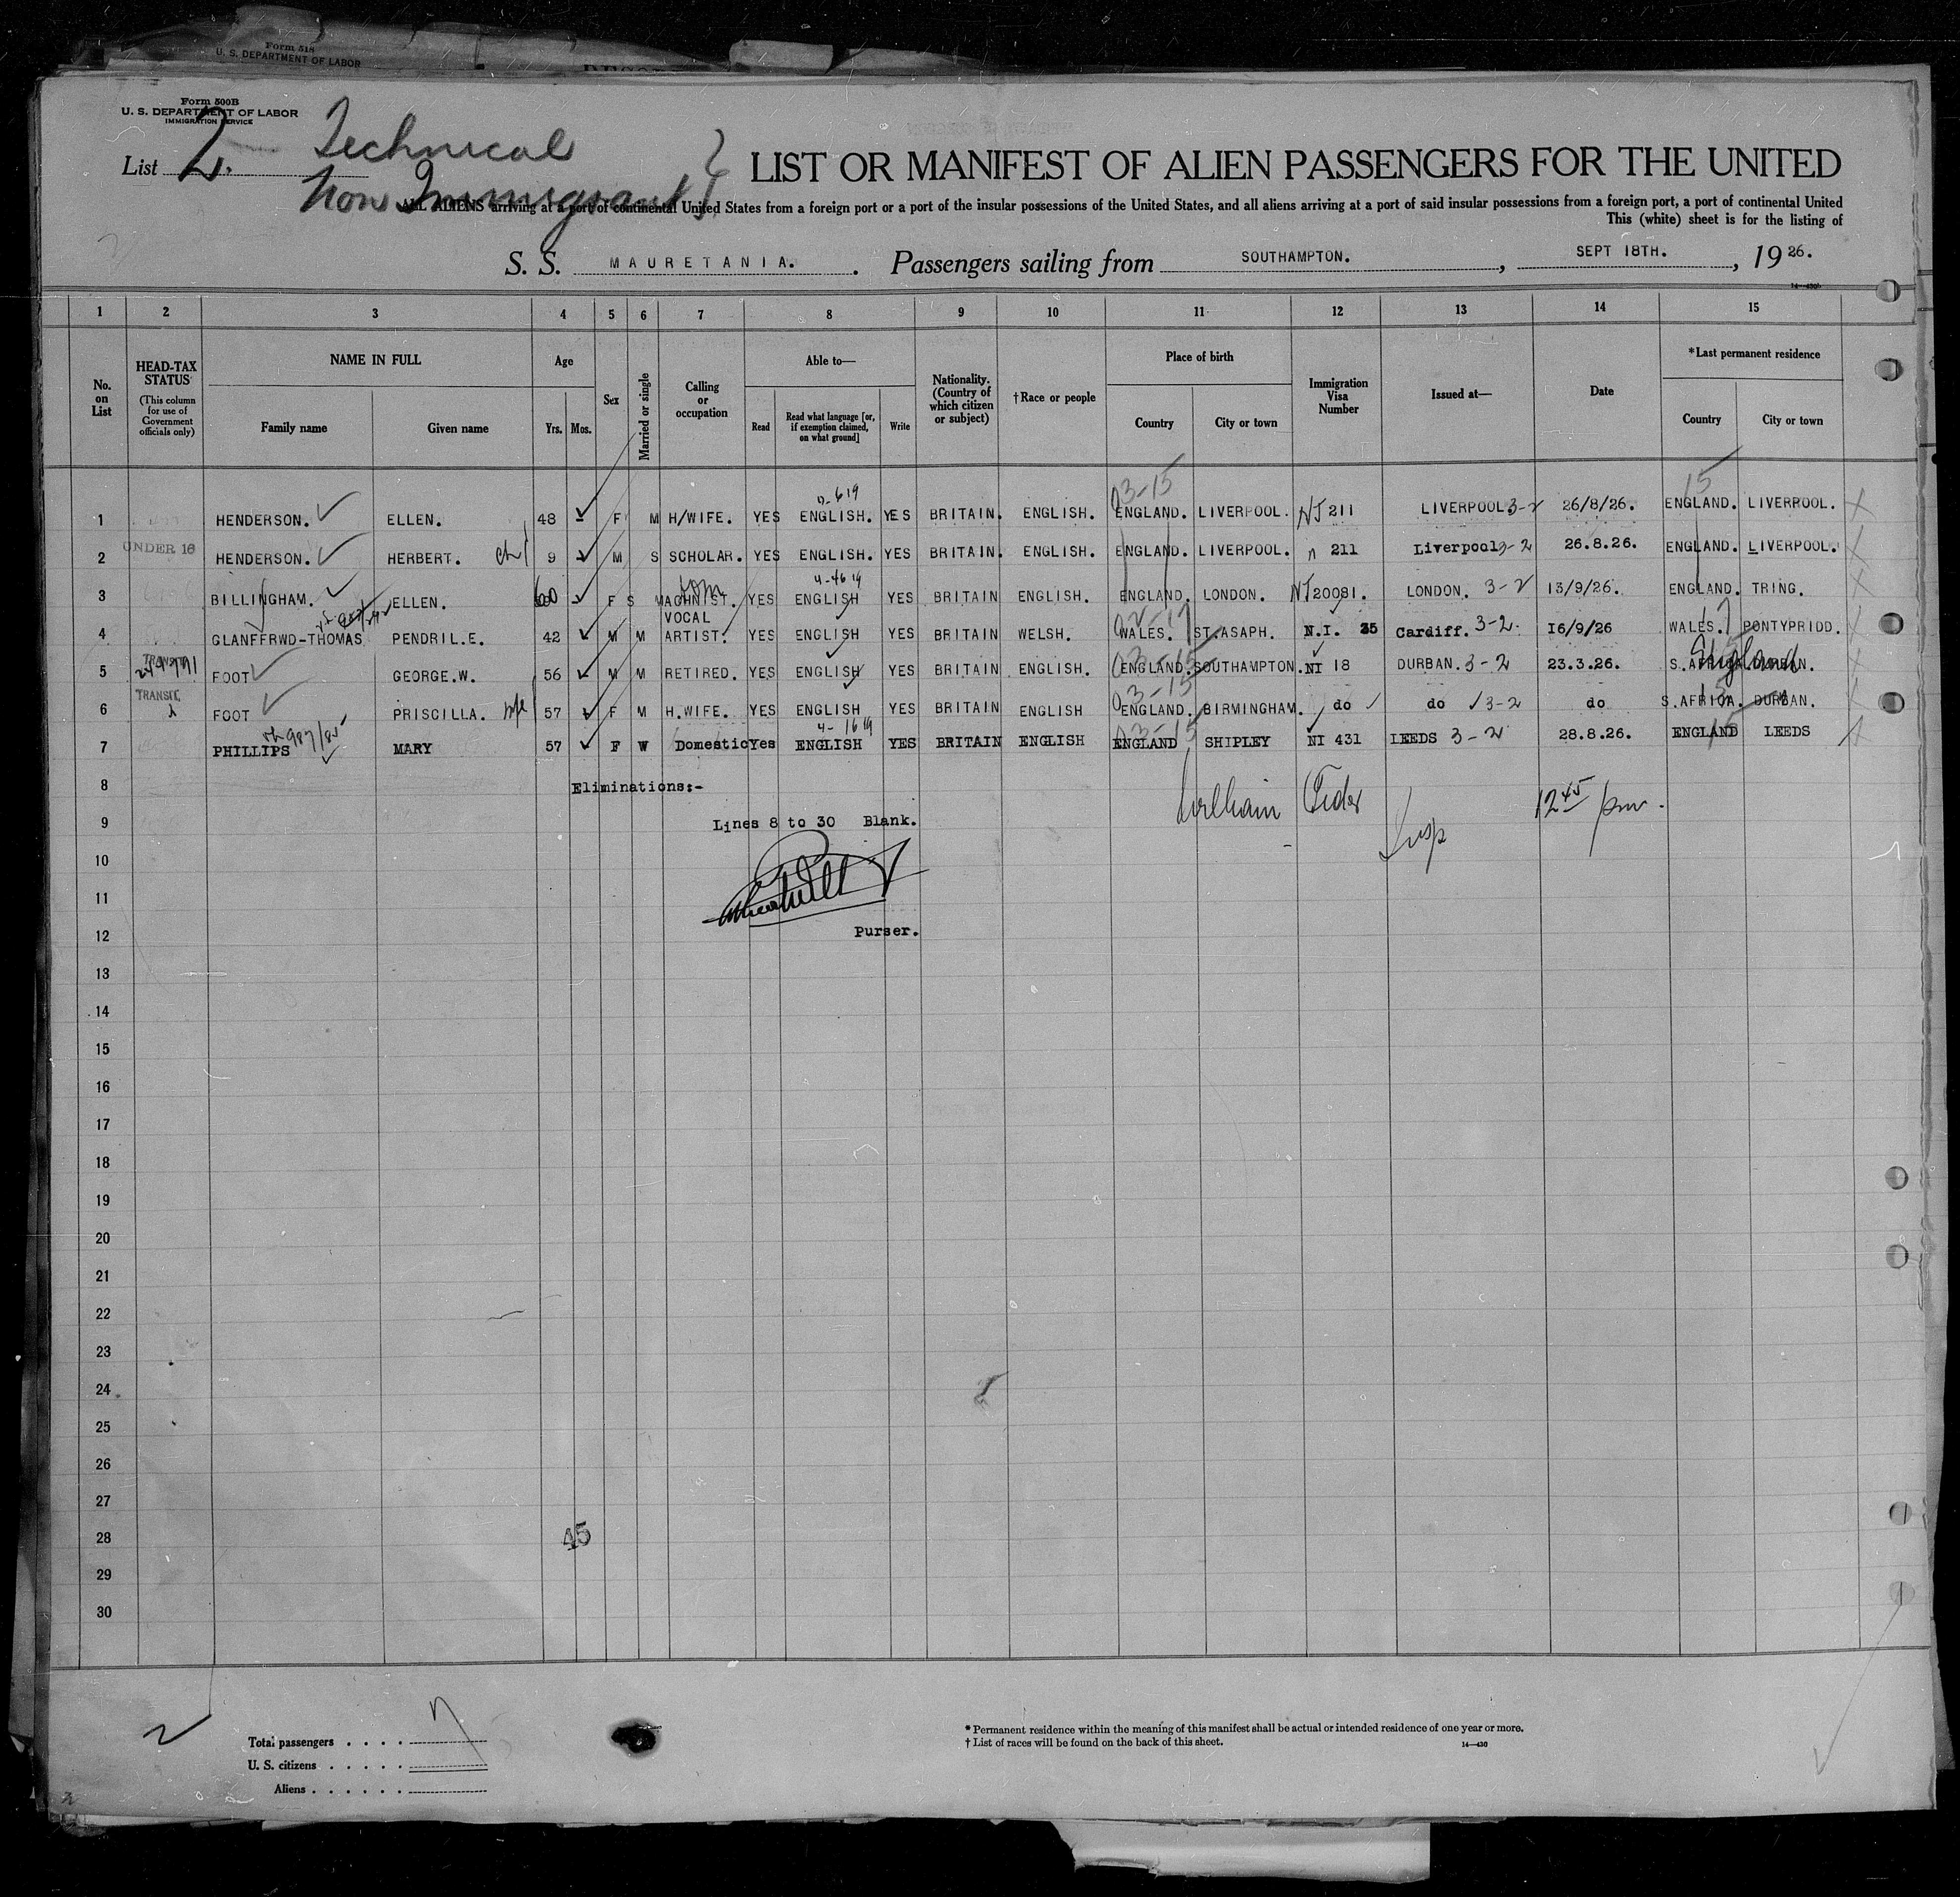 Form 518
U. S. DEPARTMENT OF LABOR
Form 500B
U. S. DEPARTMENT OF LABOR
IMMIGRATION SERVICE
List 2.
Technical
Non Immigrants
LIST OR MANIFEST OF ALIEN PASSENGERS FOR THE UNITED
ALL ALIENS arriving at a port of continental United States from a foreign port or a port of the insular possessions of the United States, and all aliens arriving at a port of said insular possessions from a foreign port, a port of continental United
This (white) sheet is for the listing of
S. S. MAURETANIA. Passengers sailing from SOUTHAMPTON. , SEPT 18TH. , 19 26.
1 2 3 4 5 6 7 8 9 10 11 12 13 14 15
No. on List
HEAD-TAX STATUS (This column for use of Government officials only)
NAME IN FULL
Family name Given name
Age
Yrs. Mos.
Sex
Married or single
Calling or occupation
Able to—
Read Read what language [or, if exemption claimed, on what ground] Write
Nationality. (Country of which citizen or subject)
†Race or people
Place of birth
Country City or town
Immigration Visa Number
Issued at—
Date
*Last permanent residence
Country City or town
1 HENDERSON. ELLEN. 48 F M H/WIFE. YES ENGLISH. YES BRITAIN. ENGLISH. 03-15 ENGLAND. LIVERPOOL. 211 LIVERPOOL 3-2 26/8/26. 15 ENGLAND. LIVERPOOL.
2 UNDER 16 HENDERSON. HERBERT. ch 9 M S SCHOLAR. YES ENGLISH. YES BRITAIN. ENGLISH. ENGLAND. LIVERPOOL. 211 Liverpool 3-2 26.8.26. ENGLAND. LIVERPOOL.
3 BILLINGHAM. ELLEN. 60 F S MACHNIST. YES ENGLISH YES BRITAIN ENGLISH. ENGLAND. LONDON. 20081. LONDON. 3-2 13/9/26. ENGLAND. TRING.
4 GLANFFRWD-THOMAS PENDRIL.E. 42 M M VOCAL ARTIST. YES ENGLISH YES BRITAIN WELSH. WALES. ST.ASAPH. N.I. 35 Cardiff. 3-2. 16/9/26 WALES. PONTYPRIDD.
5 TRANSIT FOOT GEORGE.W. 56 M M RETIRED. YES ENGLISH YES BRITAIN ENGLISH. 03-15 ENGLAND. SOUTHAMPTON. NI 18 DURBAN. 3-2 23.3.26. S.AFRICA. DURBAN. England
6 TRANSIT. FOOT PRISCILLA. wife 57 F M H.WIFE. YES ENGLISH YES BRITAIN ENGLISH 03-15 ENGLAND. BIRMINGHAM. do do 3-2 do S.AFRICA. DURBAN.
7 PHILLIPS MARY 57 F W Domestic Yes ENGLISH YES BRITAIN ENGLISH 03-15 ENGLAND SHIPLEY NI 431 LEEDS 3-2 28.8.26. 15 ENGLAND LEEDS
8 Eliminations:-
9 Lines 8 to 30 Blank.
Insp 12 45 pm.
10
11
12 Purser.
13
14
15
16
17
18
19
20
21
22
23
24
25
26
27
28 45
29
30
2
Total passengers . . . . 7
U. S. citizens . . . . .
Aliens . . . . . .
* Permanent residence within the meaning of this manifest shall be actual or intended residence of one year or more.
† List of races will be found on the back of this sheet.
14—430